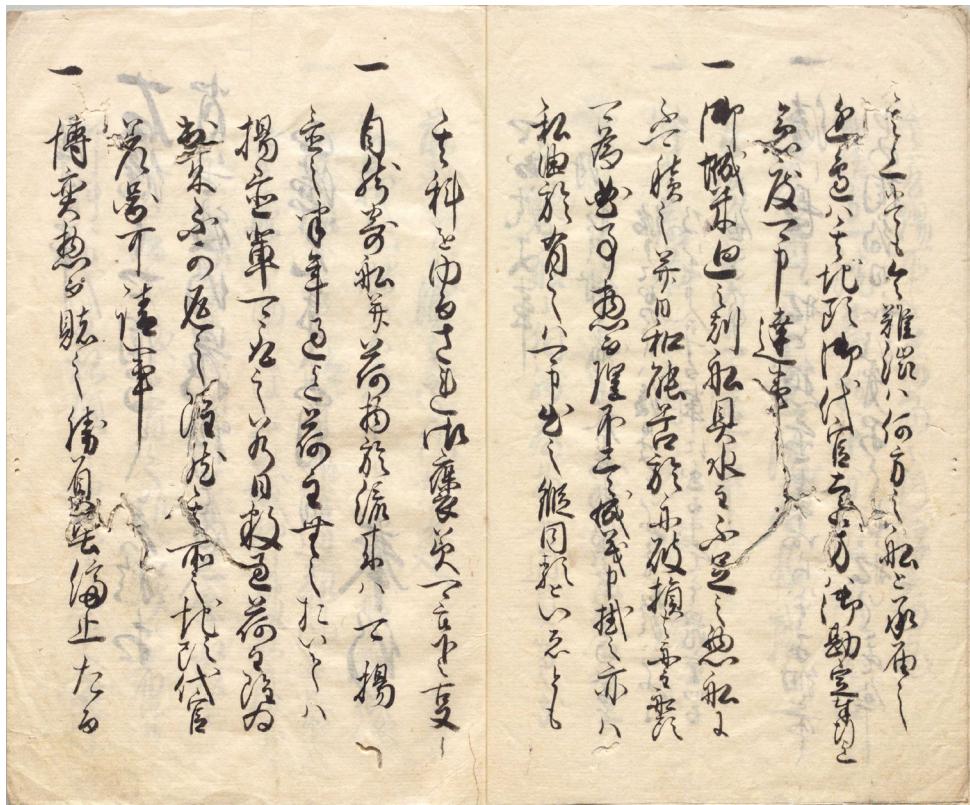 難澁ハ何方之船と承届之
其地頭御代官幸方ハ御勘定
急度可申達事
一 御城米廻之刻船具水主不足之悪船ニ
不可積之并日和能若於破損ハ船主船頭
可為曲事惣而理不尽之儀申掛之亦ハ
私曲於有之ハ可申出之縦同類といゑとも
其科をゆるされ御褒美可被下事
一 自然寄船并荷物於流来ハ可揚
置之半年過迄荷主無之おいてハ
揚置輩可取之若日数過荷主
雖為其所之地頭代官
差図可請事
一 博奕惣而賭之勝負堅停止たる